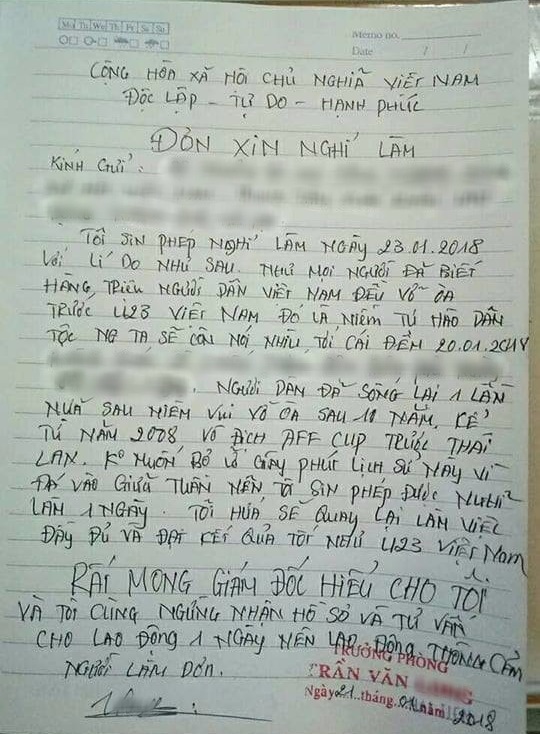 Mo Tu We Th Fr Sa Su
Memo no.
Date / /
CỘNG HÒA XÃ HỘI CHỦ NGHĨA VIỆT NAM
ĐỘC LẬP - TỰ DO - HẠNH PHÚC
ĐƠN XIN NGHỈ LÀM
KÍNH GỬI :
TÔI SIN PHÉP NGHỈ LÀM NGÀY 23.01.2018
VỚI LÍ DO NHƯ SAU. NHƯ MỌI NGƯỜI ĐÃ BIẾT
HÀNG TRIỆU NGƯỜI DÂN VIỆT NAM ĐỀU VỠ ÒA
TRƯỚC U23 VIỆT NAM ĐÓ LÀ NIỀM TỰ HÀO DÂN
TỘC NG TA SẼ CÒN NÓI NHIỀU TỚI CÁI ĐÊM 20.01.2018
. NGƯỜI DÂN ĐÃ SỐNG LẠI 1 LẦN
NỮA SAU NIỀM VUI VỠ OÀ SAU 10 NĂM. KỂ
TỪ NĂM 2008 VÔ ĐỊCH AFF CUP TRƯỚC THÁI
LAN. Ko MUỐN BỎ LỠ GIÂY PHÚT LỊCH SỬ NÀY VÌ
ĐÁ VÀO GIỮA TUẦN NÊN TÔI SIN PHÉP ĐƯỢC NGHỈ
LÀM 1 NGÀY. TÔI HỨA SẼ QUAY LẠI LÀM VIỆC
ĐẦY ĐỦ VÀ ĐẠT KẾT QUẢ TỐT NHƯ U23 VIỆT Nam
RẤT MONG GIÁM ĐỐC HIỂU CHO TÔI
VÀ TÔI CŨNG NGỪNG NHẬN HỒ SƠ VÀ TƯ VẤN
CHO LAO ĐỘNG 1 NGÀY NÊN LAO ĐỘNG THÔNG CẢM
NGƯỜI LÀM ĐƠN.
TRƯỞNG PHÒNG
TRẦN VĂN
Ngày 21 tháng 01 năm 2018